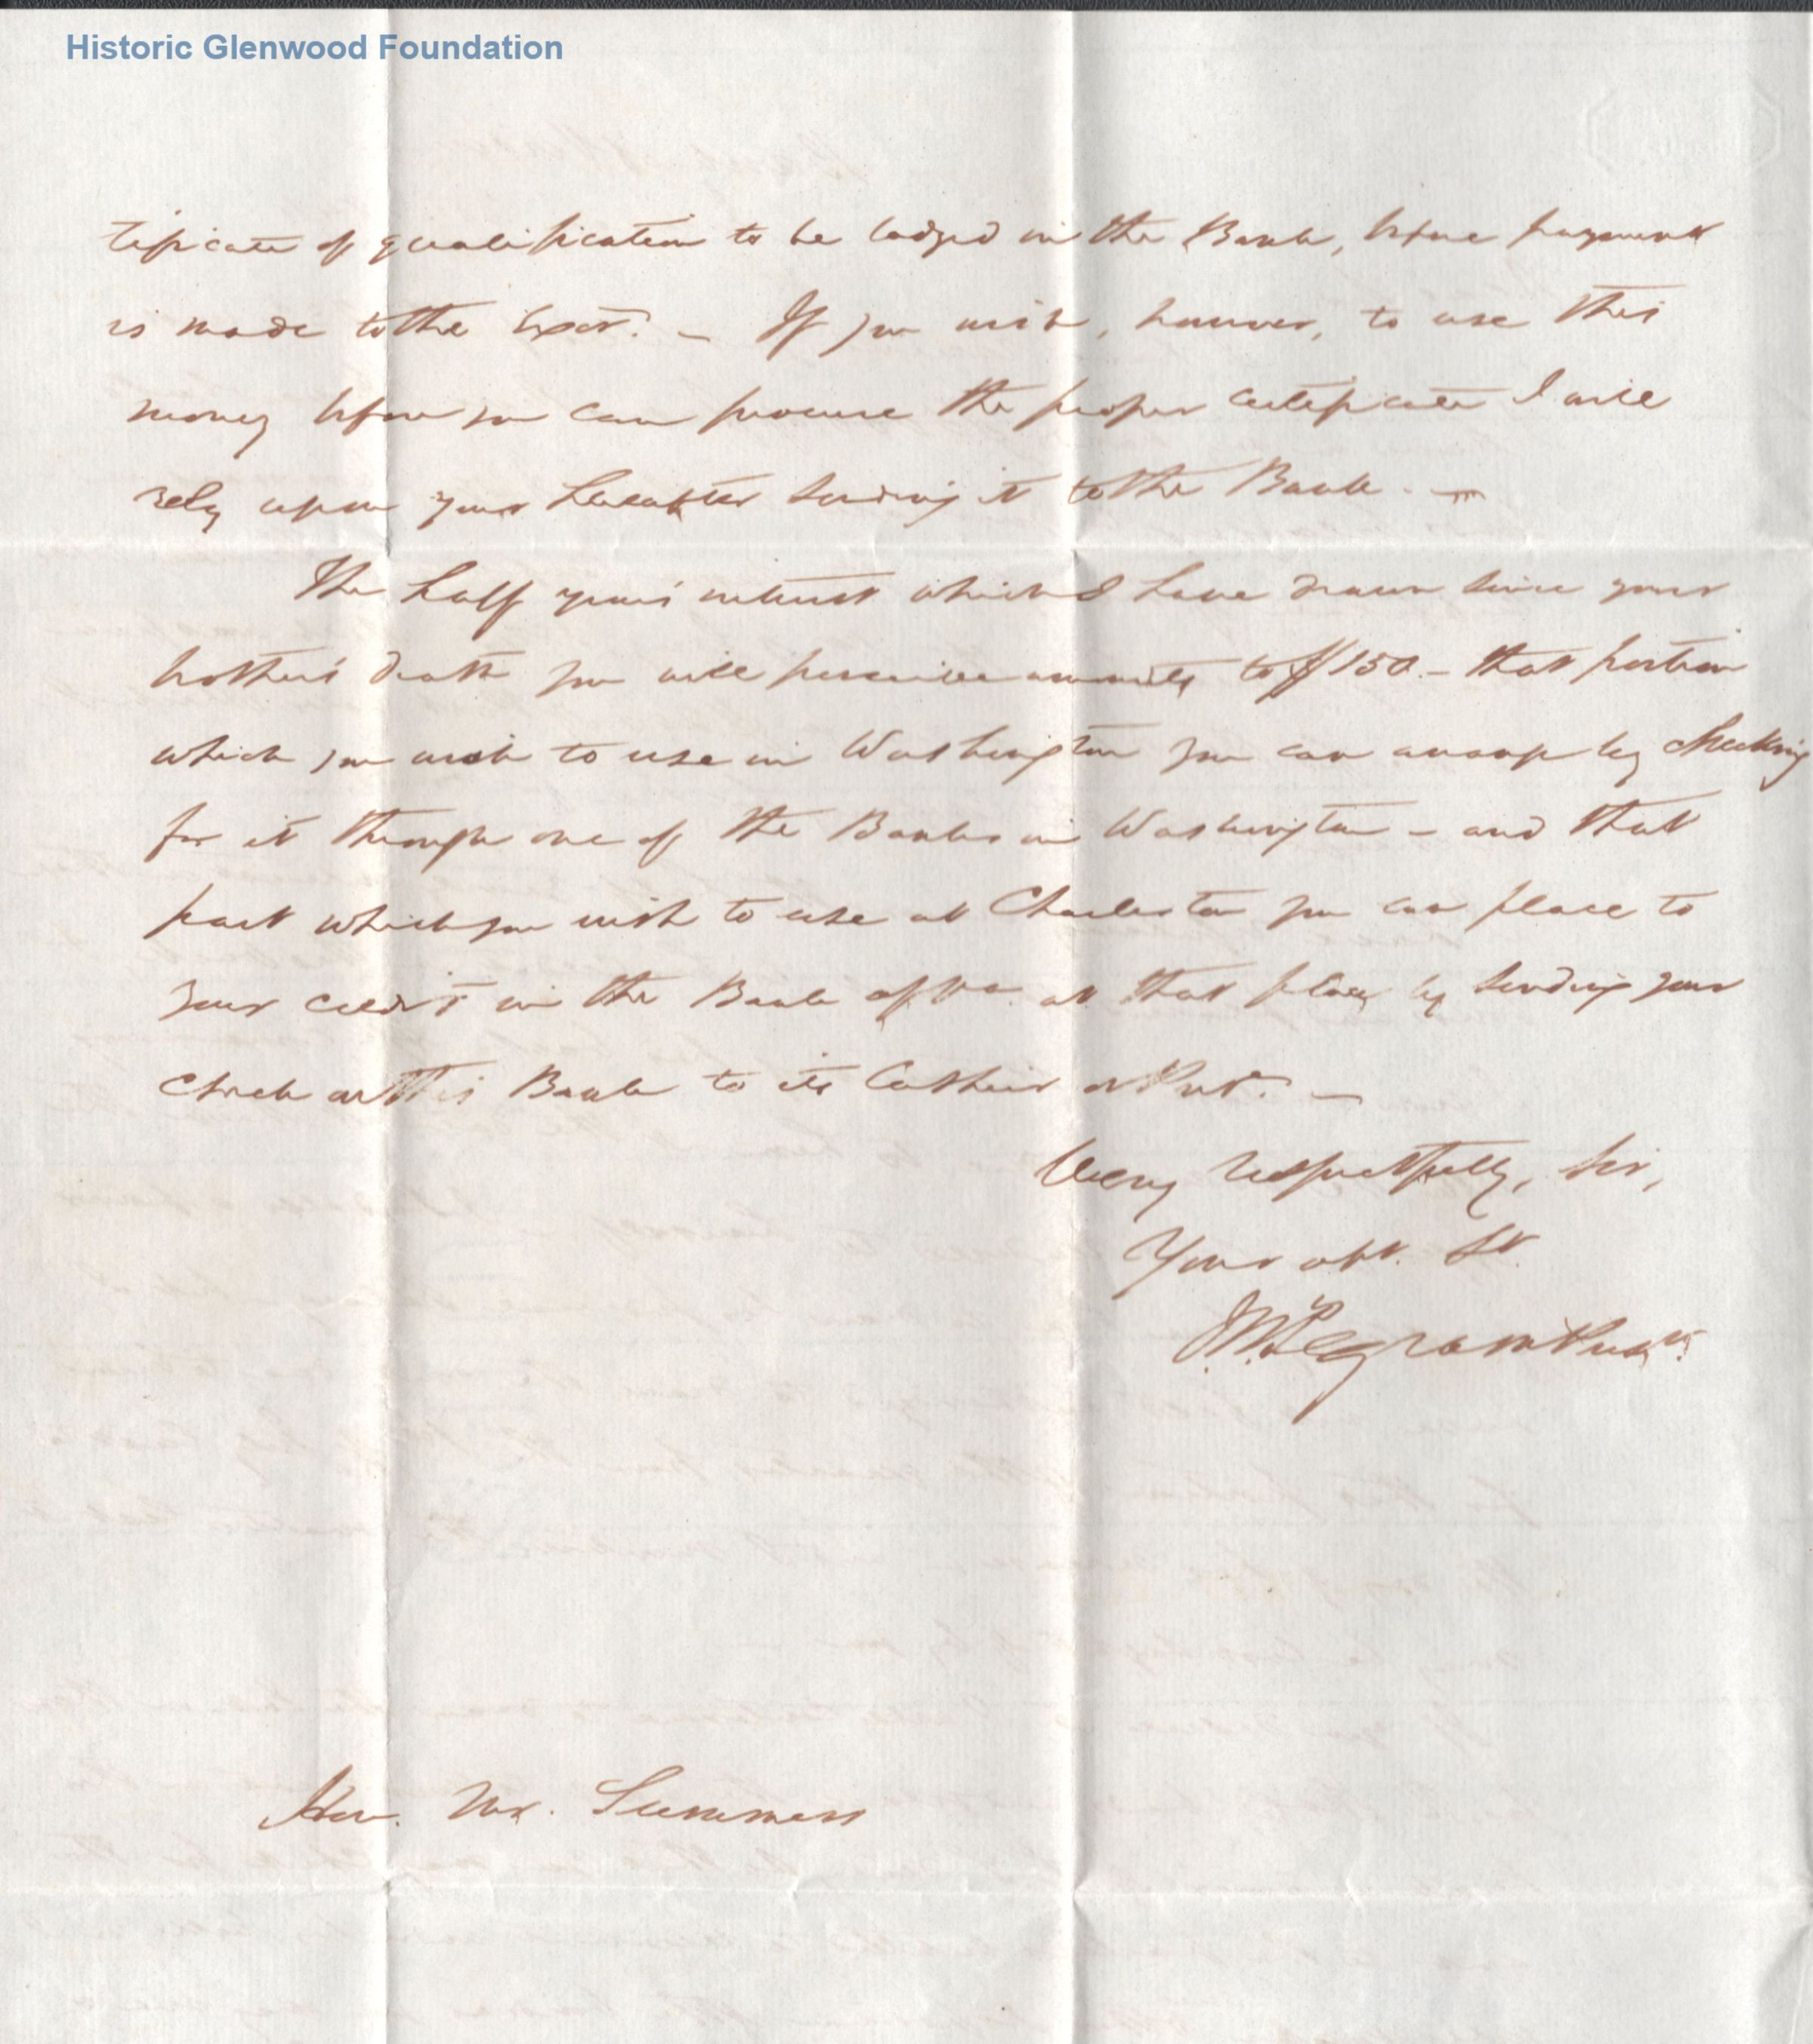 Historic Glenwood Foundation
tificate of qualification to be lodged in the Bank, before payment
is made to the Exor. – If you wish, however, to use this
money before you can procure the proper certificate I will
rely upon your hereafter sending it to the Bank. –
The half years interest which I have drawn since your
brothers death you will perceive amounts to $150. – that portion
which you wish to use in Washington you can arrange by checking
for it through one of the Banks in Washington – and that
part which you wish to use at Charleston you can place to
your credit in the Bank of Va. at that place by sending your
check on this Bank to its Cashier or Prst. –
Very respectfully, Sir,
Your obt. St.
J.W. Pegram Prest.
Hon. Mr. Summers